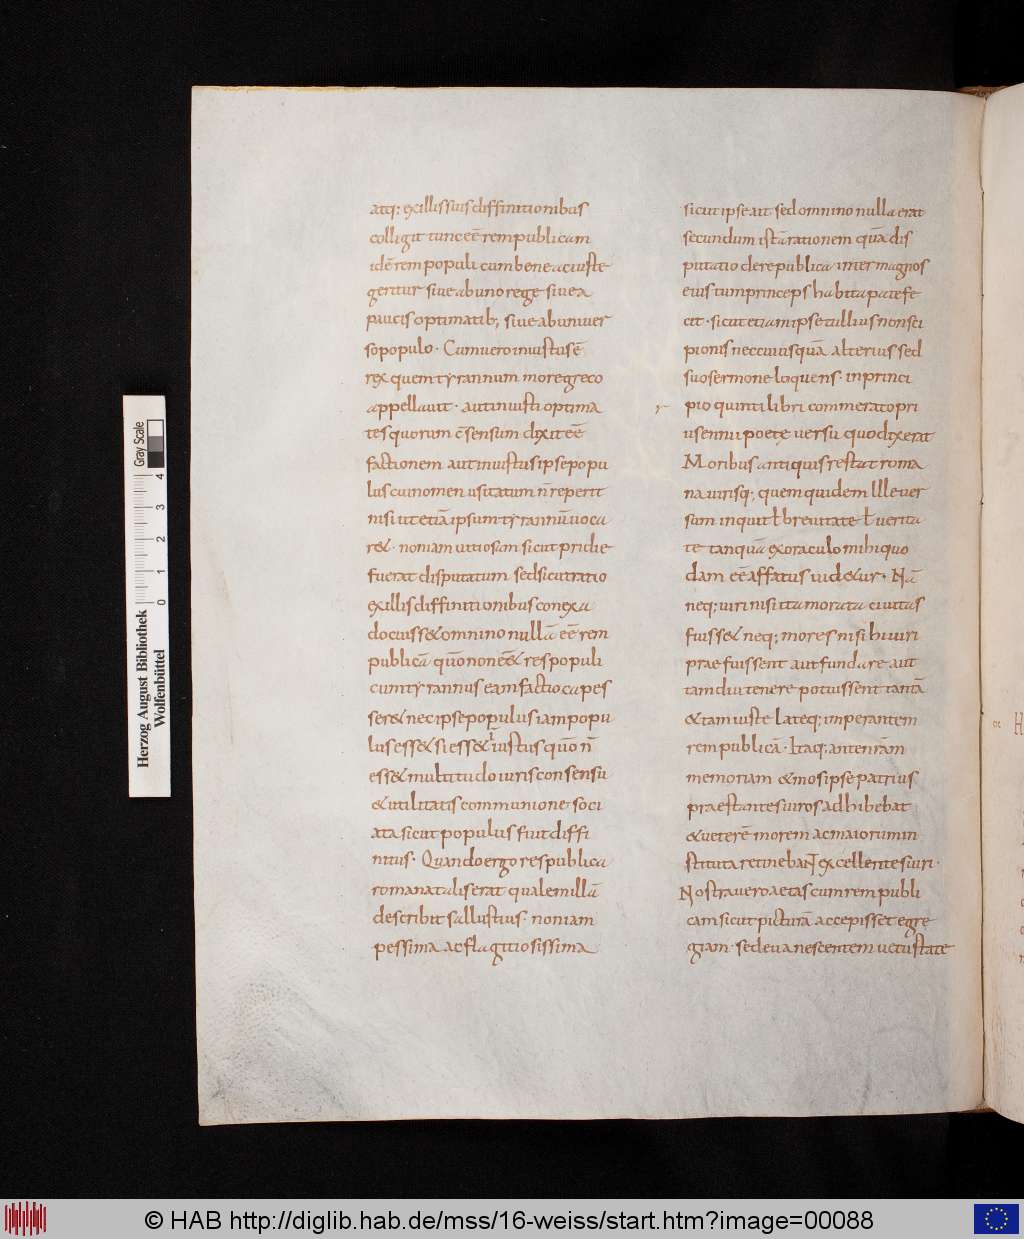 atq; ex illis suis diffinitionibus
colligit tunc eē rem publicam
idē rem populi cum bene ac iuste
geritur siue ab uno rege siue a
paucis optimatib; siue ab uniuer
so populo · Cum uero iniustus ē
rex quem tyrannum more greco
appellauit · aut iniusti optima
tes quorum cōsensum dixit eē
factionem aut iniustus ipse popu
lus cui nomen usitatum n̄ reperit
nisi ut etiā ipsum tyrannū uoca
r& · non iam uitiosam sicut pridie
fuerat disputatum sed sicut ratio
ex illis diffinitionibus conexa
docuiss& omnino nullā eē rem
publicā quō non eē& res populi
cum tyrannus eam factio capes
ser& nec ipse populus iam popu
lus ess& si ess& iustus quō n̄
ess& multitudo iuris consensu
& utilitatis communione soci
ata sicut populus fuit diffi
nitus · Quando ergo res publica
romana talis erat qualem illā
describit sallustius · non iam
pessima ac flagitiosissima
sicut ipse ait sed omnino nulla erat
secundum istā rationem quā dis
putatio de re publica inter magnos
eius tum princeps habita patefe
cit · sicut etiam ipse tullius non sci
pionis nec cuiusquā alterius sed
suo sermone loquens · in princi
r pio quinti libri commerato pri
us ennii poete uersu quo dixerat
Moribus antiquis res stat roma
na uirisq; quem quidem ille uer
sum inquit ł breuitate ł uerita
te tanquā ex oraculo mihi quo
dam eē affatus uid&ur · Nā
neq; uiri nisi ita morata ciuitas
fuiss& neq; mores nisi hi uiri
praefuissent aut fundare aut
tam diu tenere potuissent tantā
& tam iuste lateq; imperantem
rem publicā · Itaq; ante nr̄am
memoriam & mos ipse patrius
praestantes uiros adhibebat
& ueterē morem ac maiorum in
stituta retinebaNT excellentes uiri ·
Nostra uero aetas cum rem publi
cam sicut picturā accepisset egre
giam · sed euanescentem uetustate
Gray Scale
0 1 2 3 4
Herzog August Bibliothek
Wolfenbüttel
© HAB http://diglib.hab.de/mss/16-weiss/start.htm?image=00088